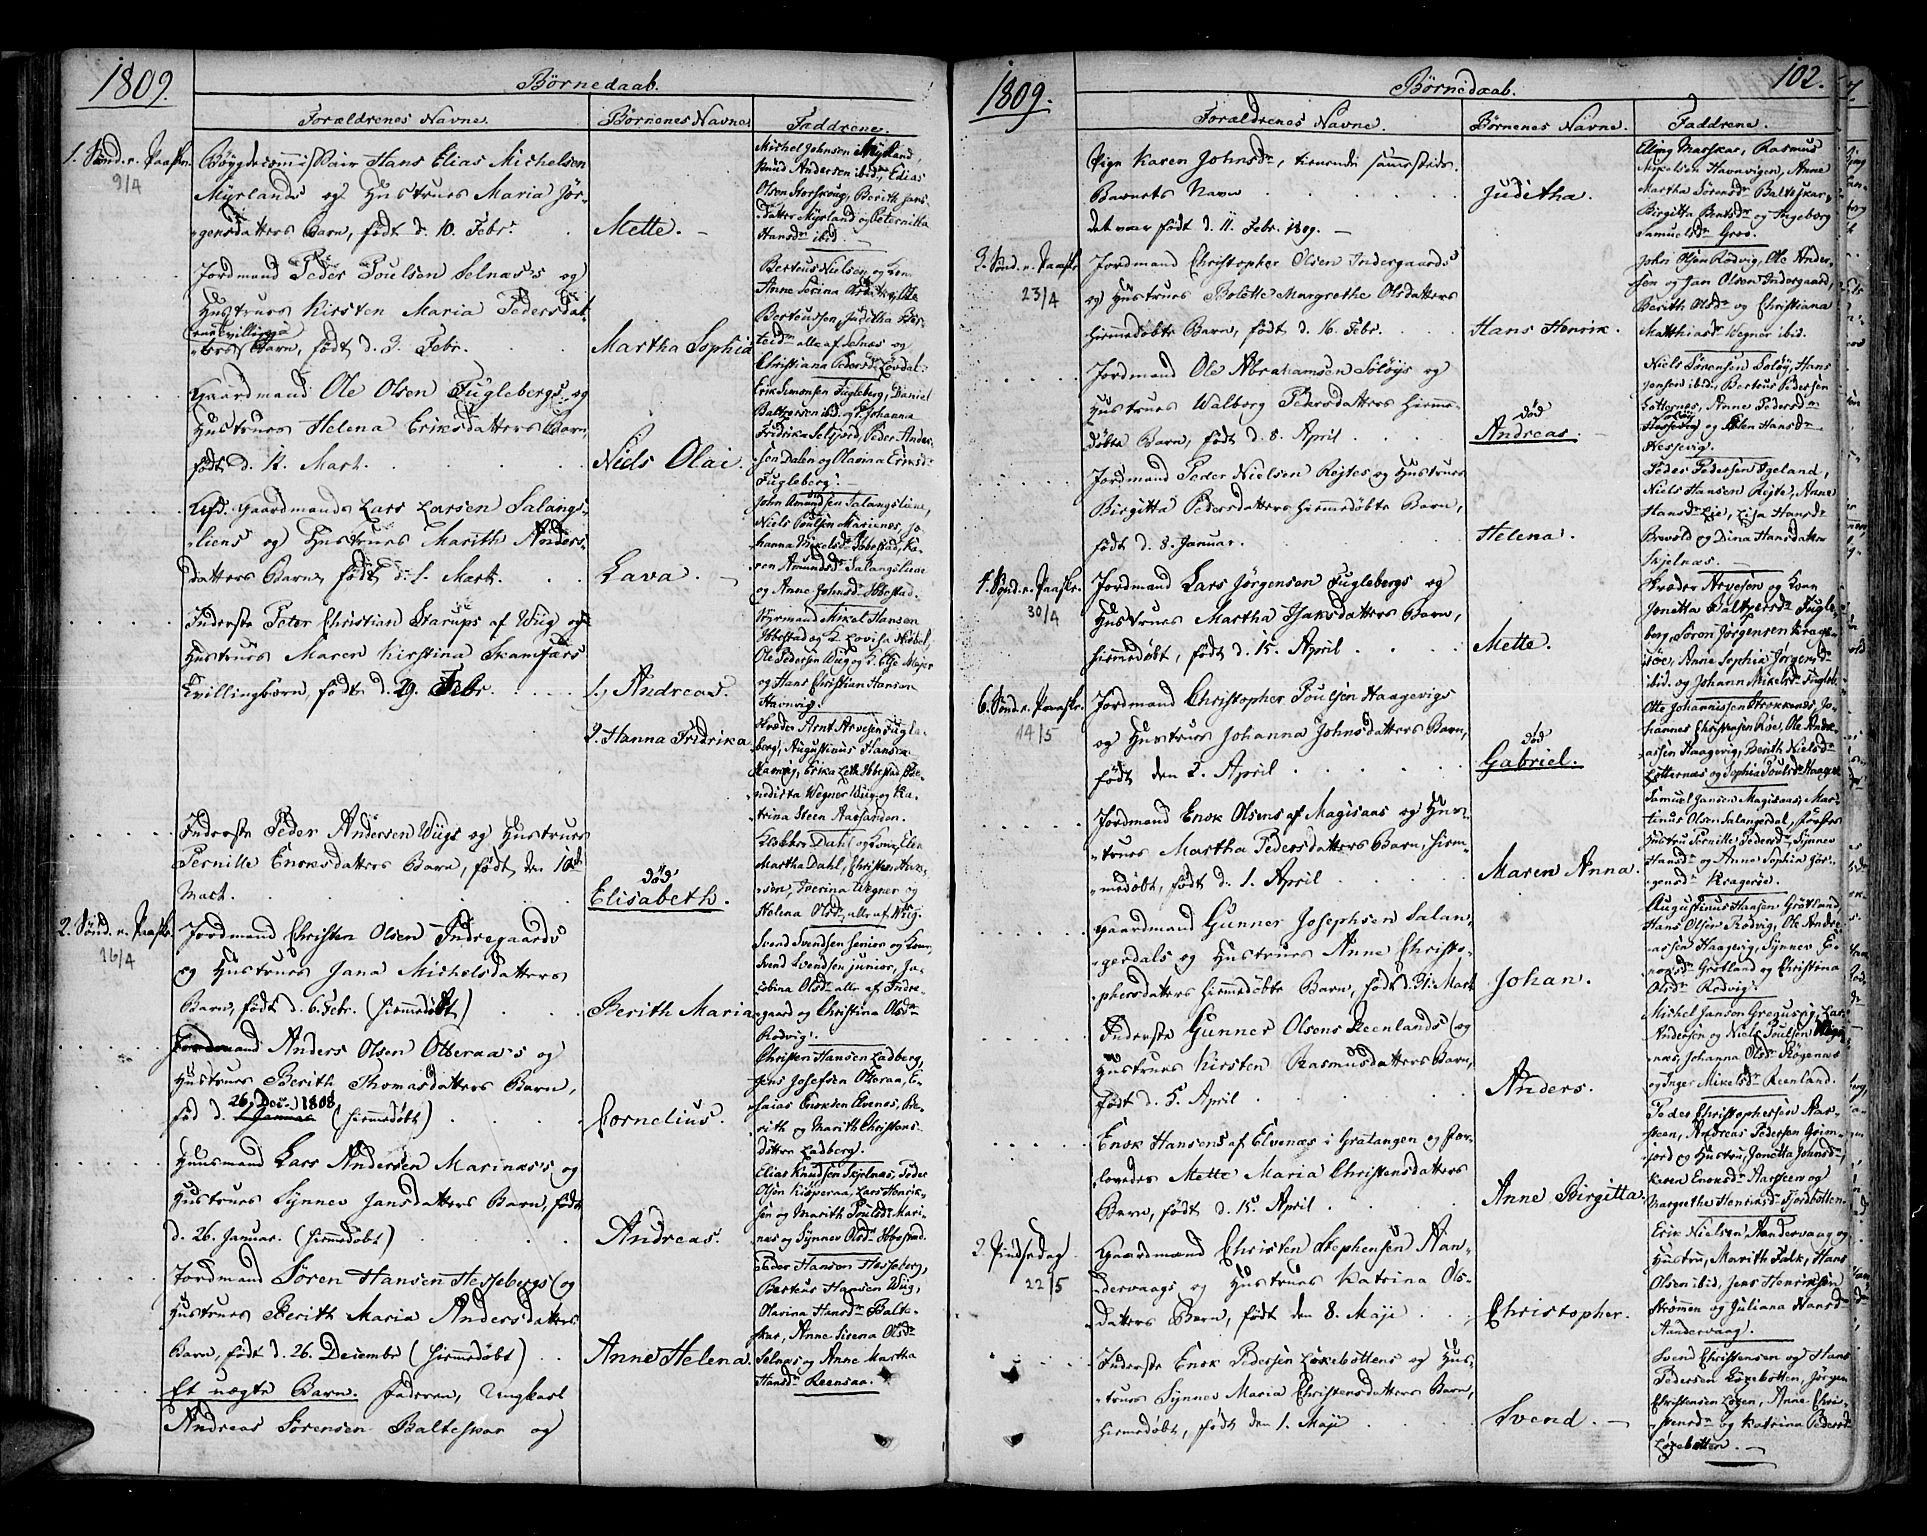 1809.
Børnedaab.
Forældrenes Navne. Børnenes Navne. Faddrene.
1. Sønd. n. Paaske. 9/4
Hans Elias Michelsen
Myrlands og Hustrues Maria Jør-
gensdatters Barn, født d. 10. Febr.
Mette.
Michel Johnsen Myrland,
Knud Andersen ibid., Elias
Olsen Storskoug, Berith Jans-
datter Myrland og Peternilla
Hansdr ibid.
Jordmand Peder Poulsen Selnæs's og
Hustrues Kirsten Maria Pedersdat-
ters Barn, født d. 3. Febr.
Martha Sophia
Berteus Nielsen og Kone
Anne Serina
Berteussen, Juditha
alle af Selnæs og
Christiana Pedersdr Løvdal.
Gaardmand Ole Olsen Fuglebergs og
Hustrues Helena Eriksdatters Barn,
født d. 12. Mart.
Niels Olai.
Erik Simonsen Fugleberg, Daniel
Baltzersen ibid. og J. Johanna
Fridrika Seljord, Peder Ander-
sen Dalen og Olavina Eriksdr
Fugleberg.
Gaardmands Lars Larsen Salangs-
liens og Hustrues Marith Anders-
datters Barn, født d. 1. Mart.
Lava.
John Amundsen Salangslien,
Niels Poulsen Marienæs, Jo-
hanna Mikelsdr Ibbestad, Ka-
ren Amundsdr Salangslien
og Anne Johnsdr Ibbestad.
Inderste Peter Christian Starups af Wiig og
Hustrues Maren Kirstina Skamfærs
Tvillingbørn, født d. 29. Febr.
1. Andreas.
Mikal Hansen
Ibbestad og J. Lovisa
Ole Pedersen Wiig og J. Else Meyer
og Hans Christian Hansen
Havnvig.
2. Hanna Fridrika
Arnt Arvesen Fugle-
berg, Augustinus Hansen
Havnvig, Erika Leth Ibbestad, Be-
nedicta Wegner Wiig og Ka-
trina Steen Aarsanden.
Inderste Peder Andersen Wiigs og Hustrues
Pernille Enoksdatters Barn, født den 10de
Mart.
død
Elisabeth.
Dahl og Kone Elen
Martha Dahl, Christen Han-
sen, Iverina Wegner og
Helena Olsdr, alle af Wiig.
2. Sønd. n. Paaske. 16/4
Jordmand Christen Olsen Indregaards
og Hustrues Jana Michelsdatters
Barn, født d. 6. Febr. (hiemmedøbt)
Berith Maria
Svend Svendsen senior og Kone,
Svend Svendsen junior, Ja-
cobina Olsdr alle af Indre-
gaard og Christina Olsdr
Rødvig.
Jordmand Anders Olsen Otteraa's og
Hustrues Berith Thomasdatters Barn,
26. Dec. 1808
fød d. 1 Januar (hiemmedøbt)
Cornelius.
Christen Hansen Ladberg,
Jens Josefsen Otteraa, E-
saias Enoksen Elvenes, Be-
rith og Marith Christens-
døttre Ladberg.
Huusmand Lars Andersen Marinæs's og
Hustrues Synnev Jansdatters Barn, født
d. 26. Januar. (hiemmedøbt)
Andreas.
Elias Knudsen Skjelnæs, Peder
Olsen Kiøperaa, Lars Henrik-
sen og Marith Poulsdr Mari-
næs og Synnev Olsdr Ibbestad.
Jordmand Søren Hansen Hessebergs og
Hustrues Berith Maria Andersdatters
Barn, født d. 26. Decembr (hiemmedøbt)
Anne Helena.
Peder Hansen Hesseberg,
Berteus Hansen Wiig,
Olavina Hansdr Balte-
skar, Anne Sirena Olsdr
Selnæs og Anne Martha
Hansdr Reensaa.
Et uægte Barn. Faderen, Ungkarl
Andreas Sørensen Balteskar og
1809.
Børnedaab.
102.
Forældrenes Navne. Børnenes Navne. Faddrene.
Pige Karen Johnsdr, tienende sammesteds.
Barnets Navn
det var født d. 11. Febr. 1809.
Juditha.
Elling Masskar, Rasmus
Mikelsen Havnvigen, Anne
Martha Sørensdr Balteskar,
Birgitta Bentsdr og Ingeborg
Samuelsdr Grov.
3. Sønd. n. Paaske. 23/4
Jordmand Christopher Olsen Indergaards
og Hustrues Bolette Margrethe Olsdatters
hiemmedøbte Barn, født d. 16. Febr.
Hans Henrik.
John Olsen Rødvig, Ole Ander-
sen og Jan Olsen Indergaard,
Berith Olsdr og Christiana
Matthiasdr Wegner ibid.
Jordmand Ole Abrahamsen Soløys og
Hustrues Walborg Pedersdatters hiemme-
døbte Barn, født d. 8. April
død
Andreas.
Niels Sørensen Soløy, Hans
Jensen ibid., Berteus Pedersen
Løtternes, Anne Pedersdr
Soløy og Elen Hansdr
Hessevig.
Jordmand Peder Nielsen Røjtes og Hustrues
Birgitta Pedersdatters hiemmedøbte Barn,
født d. 8. Januar.
Helena.
Peder Pedersen Ygeland,
Niels Hansen Røjte, Anne
Hansdr Lie, Lisa Hansdr
Brevold og Dina Hansdatter
Skjelnæs.
4. Sønd. n. Paaske. 30/4
Jordmand Lars Jørgensen Fuglebergs og
Hustrues Martha Isaksdatters Barn,
hiemmedøbt, født d. 15. April
Mette.
Arvesen og Kone
Jonetta Baltzersdr Fugle-
berg, Søren Jørgensen Krage-
røe, Anne Sophia Jørgensdr
ibid. og Johann Mikelsdr Fugleb.
6. Sønd. n. Paaske. 14/5
Jordmand Christopher Poulsen Haagevigs
og Hustrues Johanna Johnsdatters Barn,
født den 5. April
død
Gabriel.
Otte Johannissen Strokkenæs, Jo-
hannes Christensen Røe, Ole Andre-
assen Haagevig, Berith Nielsdr
Løtternæs og Sophia Poulsdr Haagev.
Jordmand Enok Olsens af Magisaas og Hu-
strues Martha Pedersdatters Barn, hiem-
medøbt, født d. 1. April
Maren Anna.
Samuel Jansen Magisaas, Mar-
tinus Olsen Salangsdal,
Hustru Pernille Pedersdr, Synnev
Hansdr og Anne Sophia Jør-
gensdr Kragerøe.
Gaardmand Gunner Josephsen Salan-
gerdals og Hustrues Anne Christo-
phersdatters hiemmedøbte Barn, født d. 31. Mart
Johan.
Augustinus Hansen Grøtland,
Hans Olsen Rødvig, Ole Andre-
assen Haagevig, Synnev E-
noksdr Grøtland og Christina
Olsdr Rødvig.
Inderste Gunner Olsens Reenlands og
Hustrues Kirsten Rasmusdatters Barn,
født d. 5. April
Anders.
Michel Jansen Gregusvig, Lars
Andersen og Niels Poulsen
næs, Johanna Olsdr Røgenæs
og Inger Mikelsdr Reenland.
Enok Hansens af Elvenæs i Gratangen og for-
lovedes Mette Maria Christensdatters
Barn, født d. 15. April
Anne Birgitta.
Peder Christophersen Aar-
steen, Andreas Pedersen Grim-
jord og Hustru, Jonetta Johnsdr,
Karen Enoksdr Aarsteen og
Margrethe Henriksdr Fjordbotten.
2. Pindsedag. 22/5
Gaardmand Christen Stephensen Aan-
dervaags og Hustrues Katrina Ols-
datters Barn, født den 8. Maji
Christopher.
Erik Nielsen Aandervaag og
Hustru, Marith Falk, Hans
Olsen ibid., Jens Henriksen
Strømmen og Juliana Hansdr
Aandervaag.
Inderste Enok Pedersen Løxebottens og Hus-
trues Synnev Maria Christensdatters Barn,
hiemmedøbt, født den 1. Maji
Svend.
Svend Christensen og Hans
Pedersen Løxebotten, Jørgen
Christensen Løxen, Anne Chri-
stensdr og Katrina Pedersdr
Løxebotten.